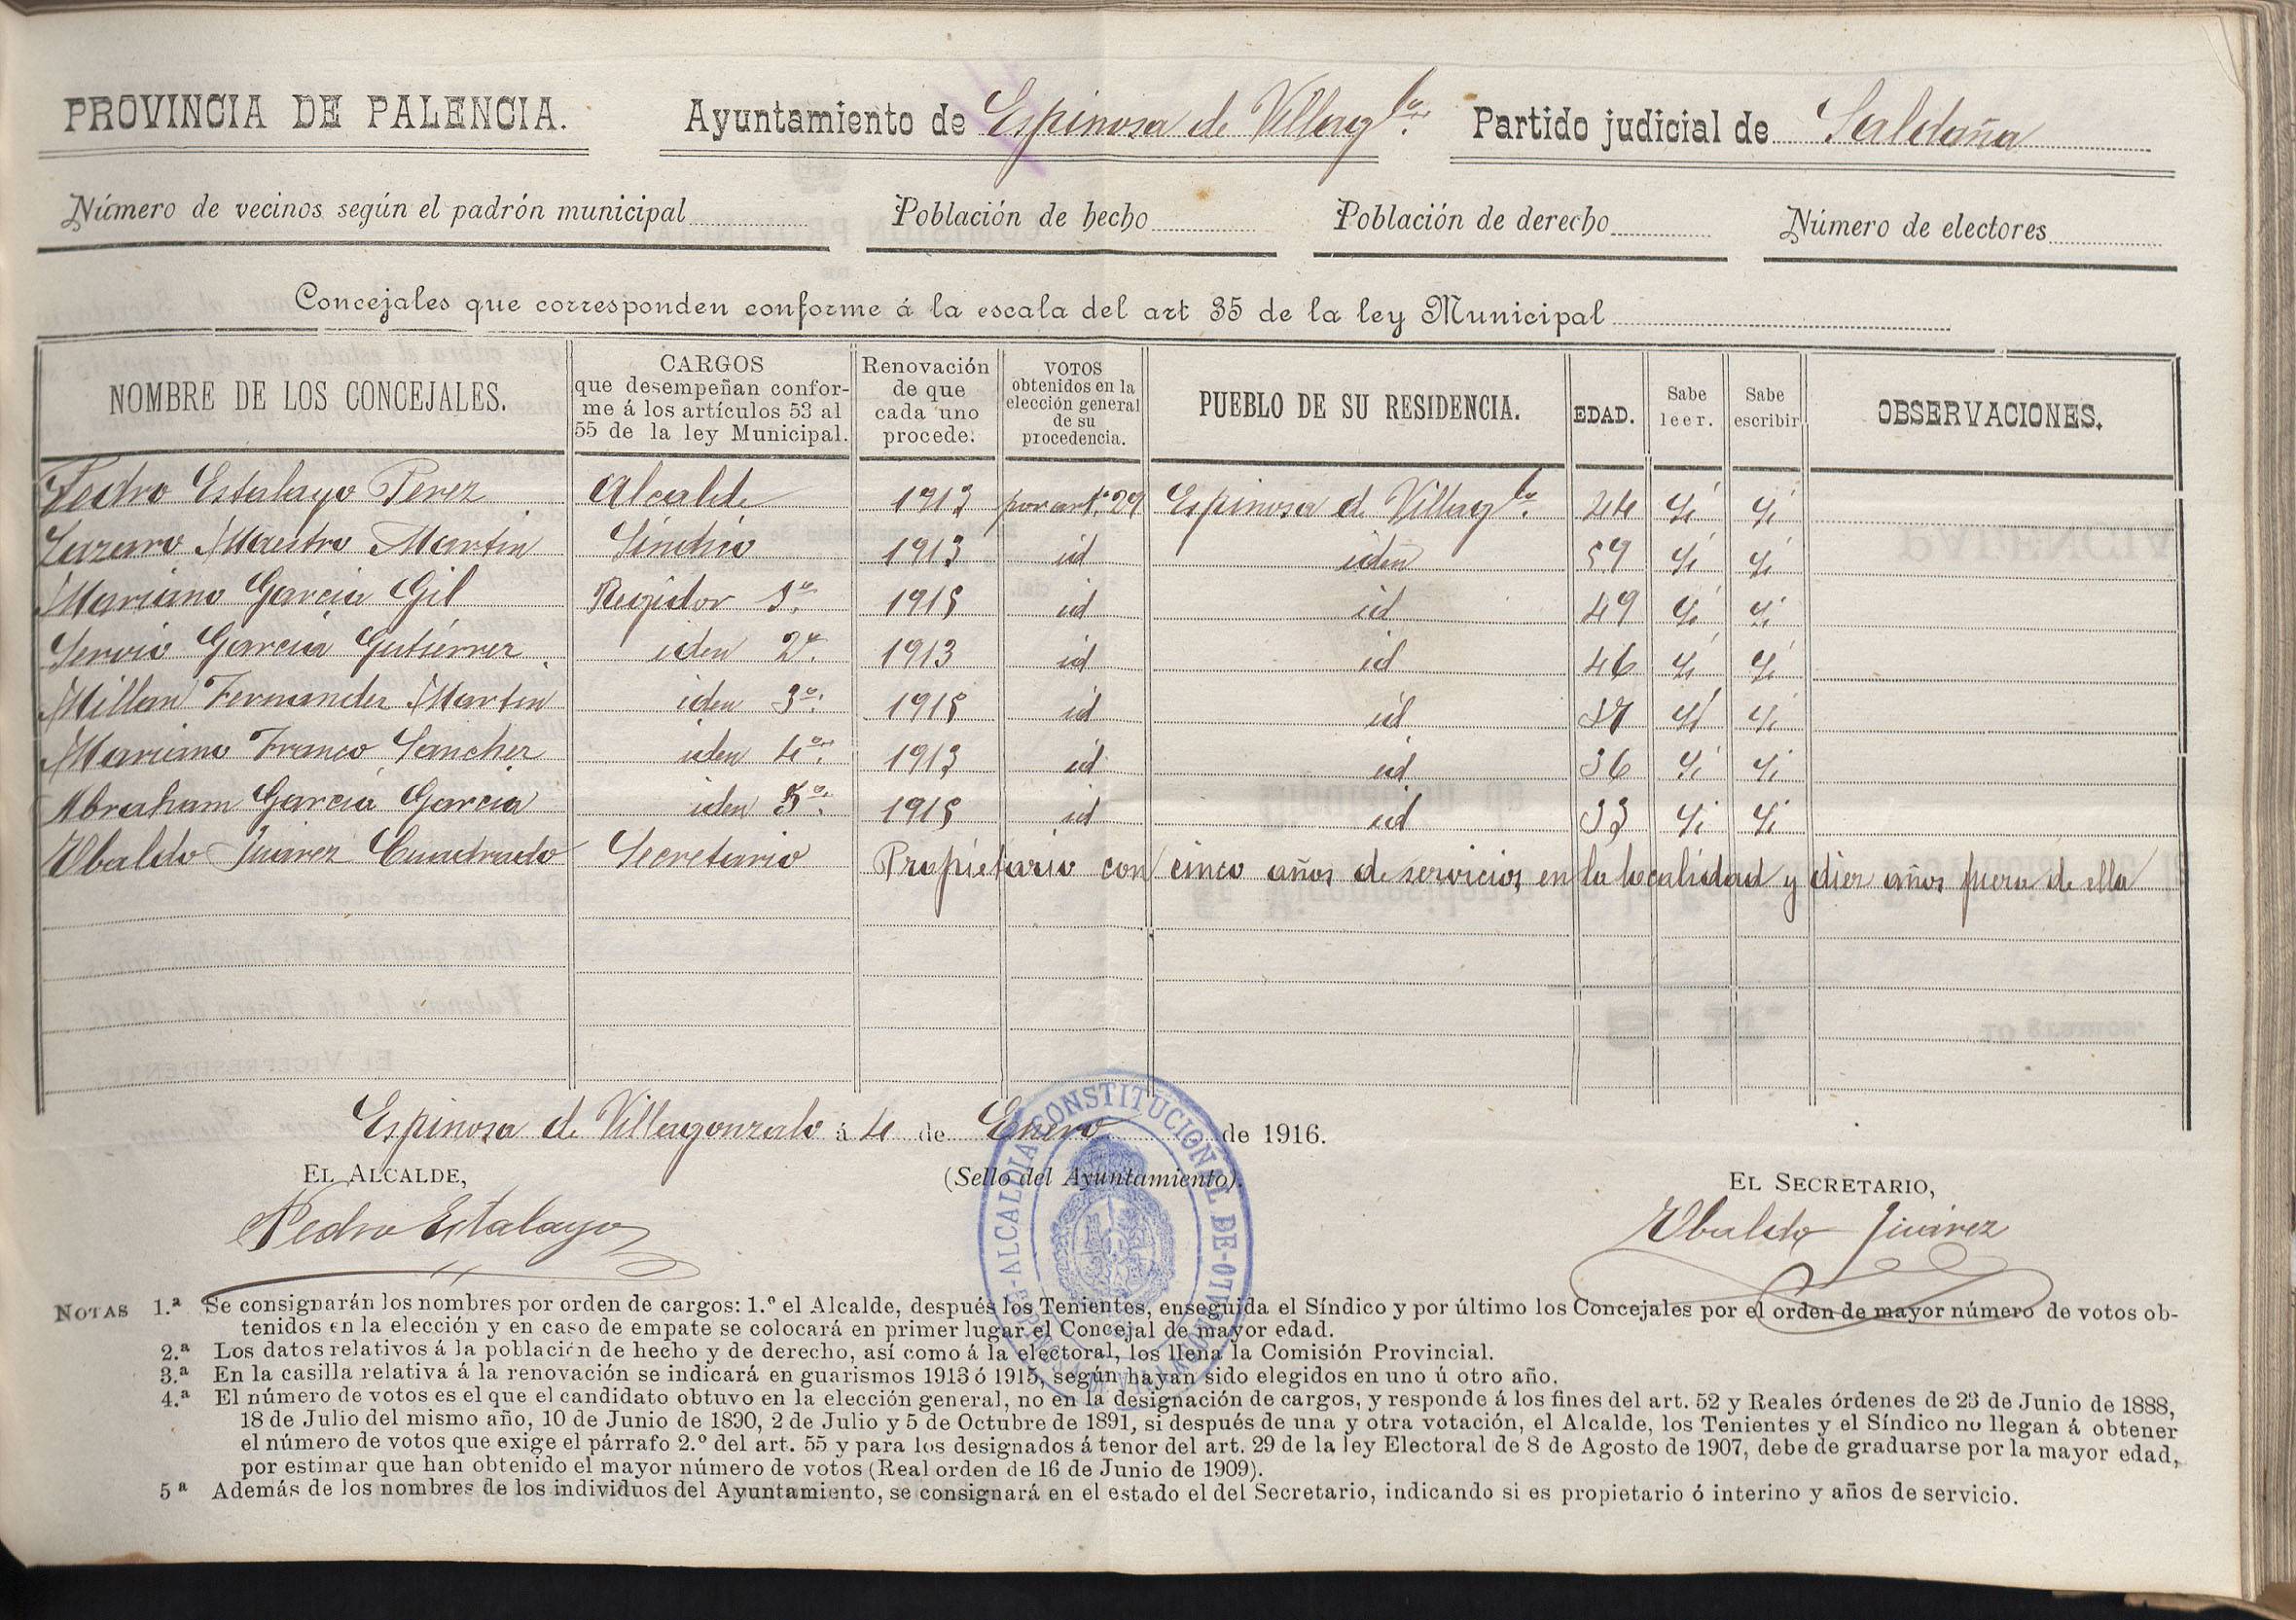 PROVINCIA DE PALENCIA. Ayuntamiento de Espinosa de Villaglo. Partido judicial de Saldaña
Número de vecinos según el padrón municipal Población de hecho Población de derecho Número de electores
Concejales que corresponden conforme á la escala del art 35 de la ley Municipal
NOMBRE DE LOS CONCEJALES. CARGOS que desempeñan conforme á los artículos 53 al 55 de la ley Municipal. Renovación de que cada uno procede. VOTOS obtenidos en la elección general de su procedencia. PUEBLO DE SU RESIDENCIA. EDAD. Sabe leer. Sabe escribir OBSERVACIONES.
Pedro Estalayo Perez Alcalde 1913 por art.º 29 Espinosa de Villaglo. 44 Si Si
Lazaro Maestro Martin Sindico 1913 id iden 59 Si Si
Mariano Garcia Gil Regidor 1º 1915 id id 49 Si Si
Servio Garcia Gutierrez iden 2º 1913 id id 46 Si Si
Millan Fernandez Martin iden 3º 1915 id id Si Si
Mariano Franco Sanchez iden 4º 1913 id id 36 Si Si
Abraham Garcia Garcia iden 5º 1915 id id 33 Si Si
Ubaldo Juarez Cuadrado Secretario Propietario con cinco años de servicios en la localidad y diez años fuera de ella
Espinosa de Villagonzalo á 4 de Enero de 1916.
EL ALCALDE, (Sello del Ayuntamiento). EL SECRETARIO,
Pedro Estalayo Ubaldo Juárez
ALCALDIA CONSTITUCIONAL DE
NOTAS 1.ª Se consignarán los nombres por orden de cargos: 1.º el Alcalde, después los Tenientes, enseguida el Síndico y por último los Concejales por el orden de mayor número de votos ob-
tenidos en la elección y en caso de empate se colocará en primer lugar el Concejal de mayor edad.
2.ª Los datos relativos á la población de hecho y de derecho, así como á la electoral, los llena la Comisión Provincial.
3.ª En la casilla relativa á la renovación se indicará en guarismos 1913 ó 1915, según hayan sido elegidos en uno ú otro año.
4.ª El número de votos es el que el candidato obtuvo en la elección general, no en la designación de cargos, y responde á los fines del art. 52 y Reales órdenes de 23 de Junio de 1888,
18 de Julio del mismo año, 10 de Junio de 1890, 2 de Julio y 5 de Octubre de 1891, si después de una y otra votación, el Alcalde, los Tenientes y el Síndico no llegan á obtener
el número de votos que exige el párrafo 2.º del art. 55 y para los designados á tenor del art. 29 de la ley Electoral de 8 de Agosto de 1907, debe de graduarse por la mayor edad,
por estimar que han obtenido el mayor número de votos (Real orden de 16 de Junio de 1909).
5ª Además de los nombres de los individuos del Ayuntamiento, se consignará en el estado el del Secretario, indicando si es propietario ó interino y años de servicio.